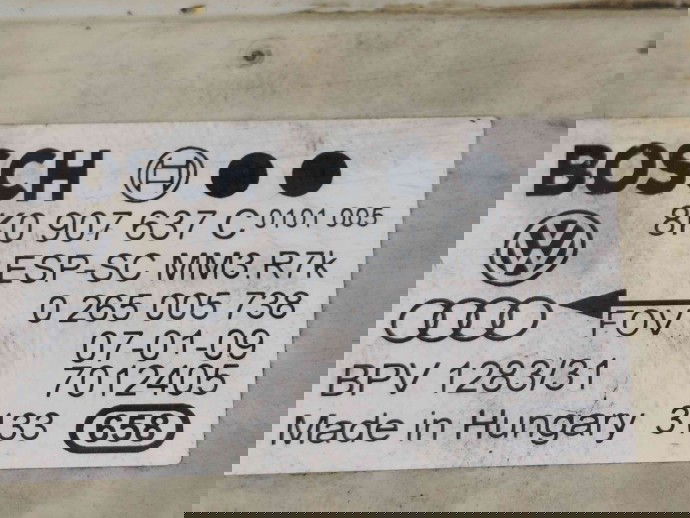 BOSCH
8K0 907 637 C 0101 005
ESP-SC MM3.R7k
0 265 005 738
FOV
07-01-09
70124I05
BPV 1283/31
3133 656 Made in Hungary